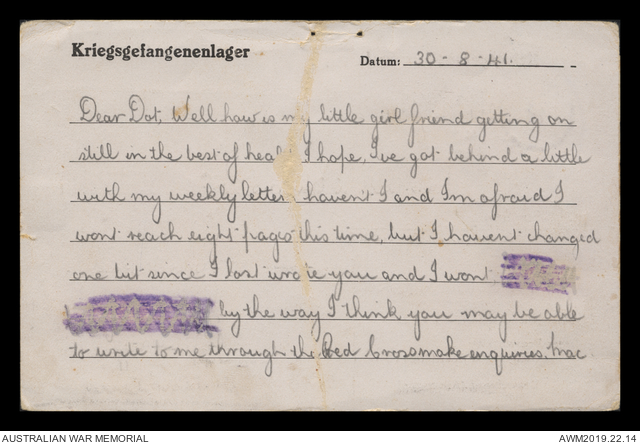 Kriegsgefangenenlager
Datum: 30-8-41.
Dear Dot, Well how is my little girl friend getting on
still in the best of health I hope, I've got behind a little
with my weekly letter haven't I and I'm afraid I
wont reach eight pages this time, but I havent changed
one bit since I last wrote you and I wont
by the way I think you may be able
to write to me through the Red Cross make enquiries. Mac
AUSTRALIAN WAR MEMORIAL
AWM2019.22.14